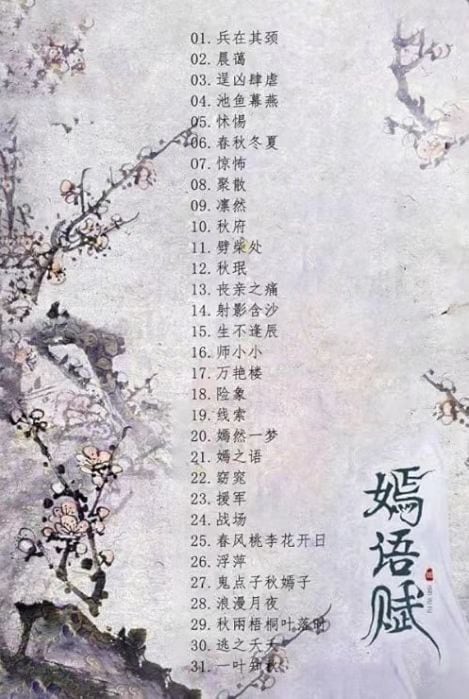 01. 兵在其颈
02. 晨蔼
03. 逞凶肆虐
04. 池鱼幕燕
05. 怵惕
06. 春秋冬夏
07. 惊怖
08. 聚散
09. 凛然
10. 秋府
11. 劈柴处
12. 秋珉
13. 丧亲之痛
14. 射影含沙
15. 生不逢辰
16. 师小小
17. 万艳楼
18. 险象
19. 线索
20. 嫣然一梦
21. 嫣之语
22. 窈窕
23. 援军
24. 战场
25. 春风桃李花开日
26. 浮萍
27. 鬼点子秋嫣子
28. 浪漫月夜
29. 秋雨梧桐叶落时
30. 逃之夭夭
31. 一叶知秋
嫣语赋